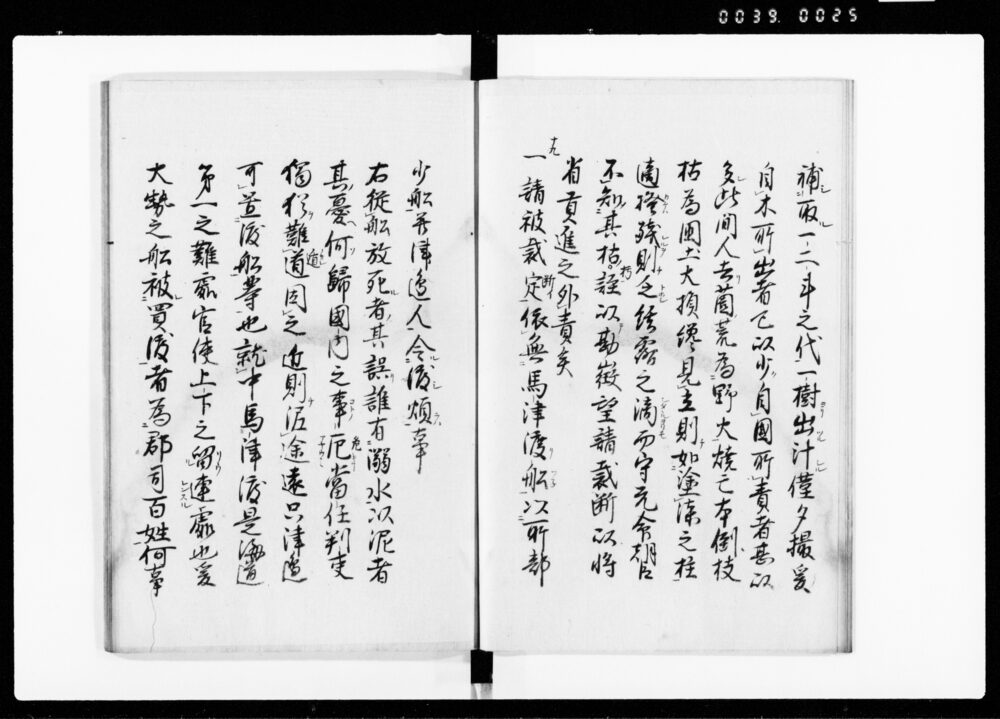 0039 0025
補取一二斗之代一樹出汁僅夕撮爰
自木所出者已以少自國所責者甚以
多此間人去薗荒為野火燒亡本倒枝
枯為風土大損纔見立則如塗漆之柱
適搔殘則乏績露之滴而守元命朝臣
不知其枯誣以勘徵望請裁断以將
省貢進之外責矣
十九
一請被裁定依無馬津渡船以所部
少船并津邊人令渡煩事
右從船放死者其誤誰有溺水以泥者
其憂何歸國內之事厄當任判吏
獨猶難道因之近則泥途遠只津邊
可萱渡船等也就中馬津渡是海道
第一之難處官使上下之留連處也爰
大勢之船被買渡者為郡司百姓何事